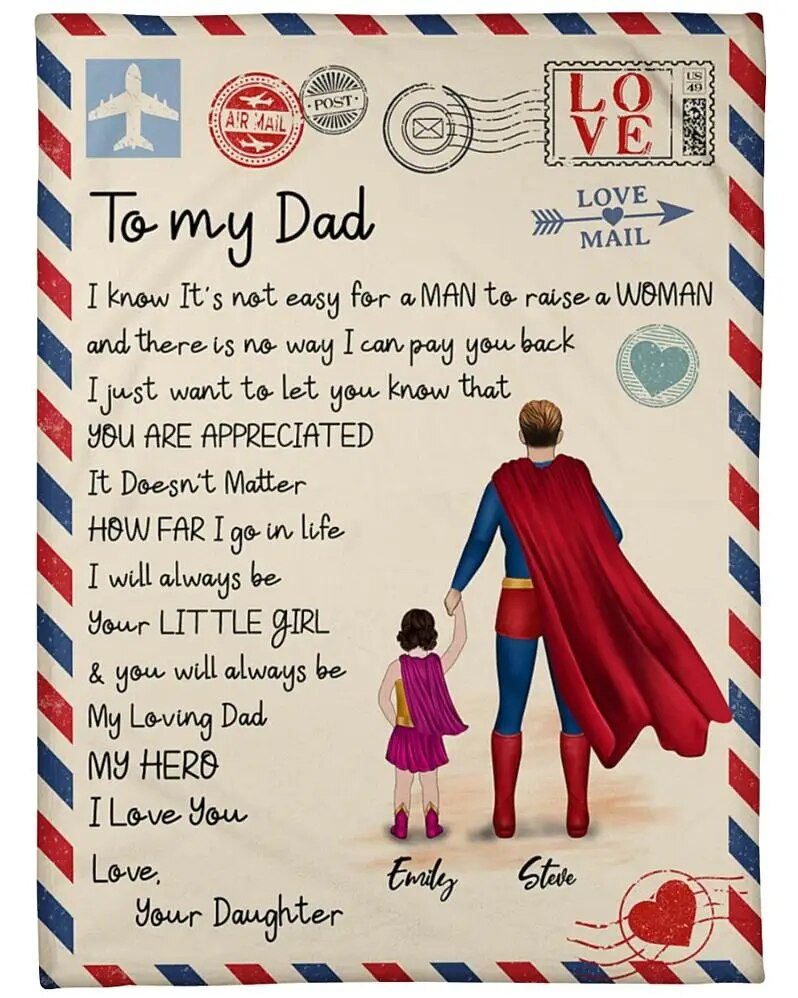 AIR MAIL
POST
LO
VE
US
49
To my Dad
LOVE
MAIL
I know It's not easy for a MAN to raise a WOMAN
and there is no way I can pay you back
I just want to let you know that
YOU ARE APPRECIATED
It Doesn't Matter
HOW FAR I go in life
I will always be
Your LITTLE GIRL
& you will always be
My Loving Dad
MY HERO
I Love You
Love,
Your Daughter
Emily
Steve